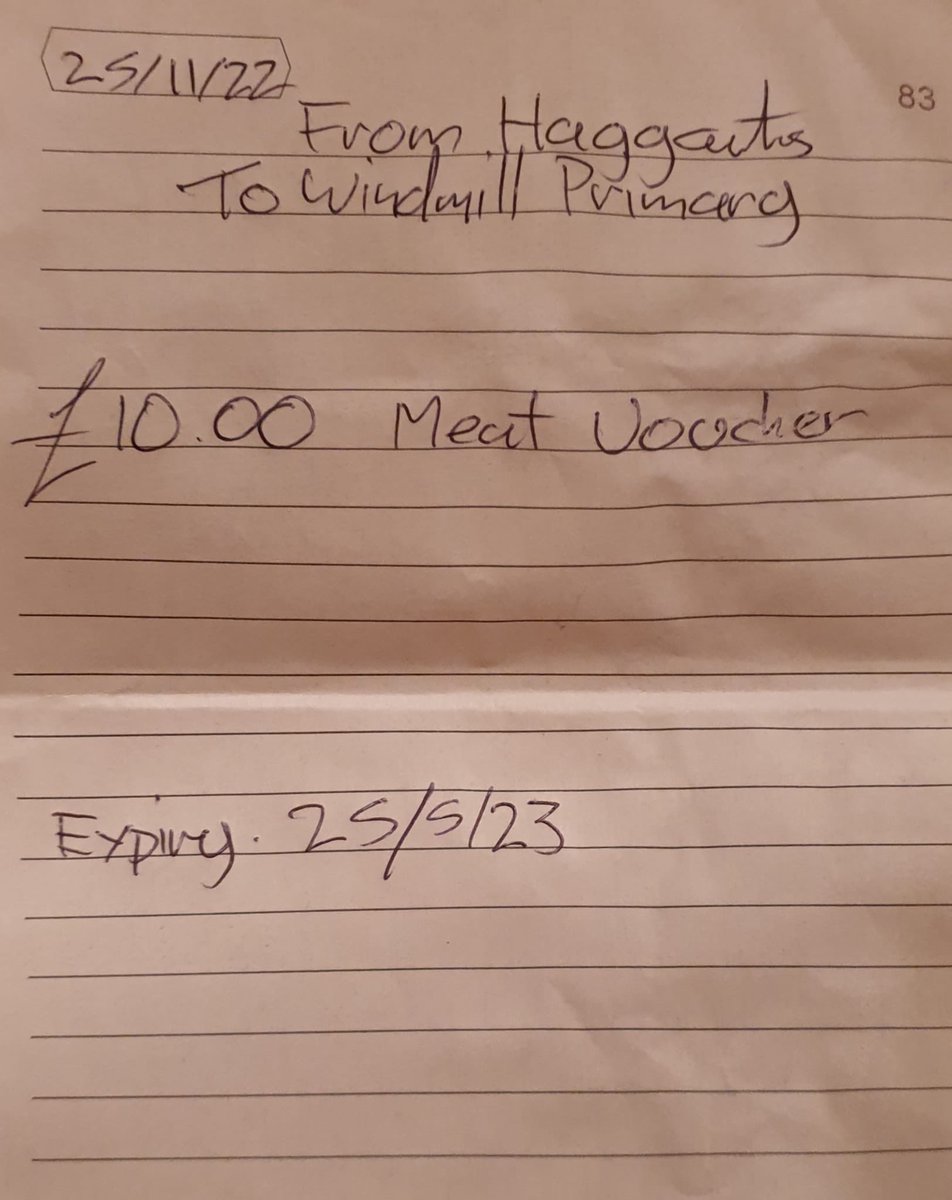 25/11/22
83
From Haggarts
To Windmill Primary
£10.00 Meat Voucher
Expiry. 25/5/23